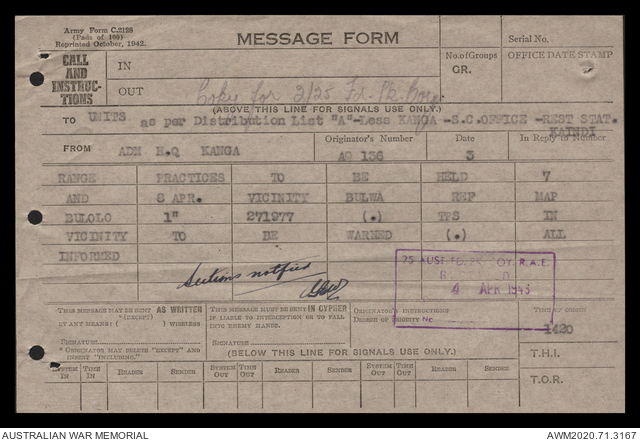 Army Form C.2128
(Pads of 100)
Reprinted October, 1942.
MESSAGE FORM
Serial No.
CALL
AND
INSTRUC-
TIONS
IN
OUT
No. of Groups
GR.
OFFICE DATE STAMP
for 2/25
(ABOVE THIS LINE FOR SIGNALS USE ONLY.)
TO UNITS as per Distribution List "A"-Less KANGA -S.C.OFFICE -REST STAT.
KAINDI
FROM ADM H.Q KANGA
Originator's Number
AQ 136
Date
3
In Reply to Number
RANGE PRACTICES TO BE HELD 7
AND 8 APR. VICINITY BULWA REF MAP
BULOLO 1" 271977 (.) TPS IN
VICINITY TO BE WARNED (.) ALL
INFORMED
Sections notified
75 AUST COY. R.A.E.
4 APR 1943
THIS MESSAGE MAY BE SENT AS WRITTEN
*(EXCEPT)
BY ANY MEANS ( ) WIRELESS
SIGNATURE
* ORIGINATOR MAY DELETE "EXCEPT" AND
INSERT "INCLUDING."
THIS MESSAGE MUST BE SENT IN CYPHER
IF LIABLE TO INTERCEPTION OR TO FALL
INTO ENEMY HANDS.
SIGNATURE
ORIGINATOR'S INSTRUCTIONS
DEGREE OF PRIORITY
TIME OF ORIGIN
1420
(BELOW THIS LINE FOR SIGNALS USE ONLY.)
T.H.I.
T.O.R.
SYSTEM IN
TIME IN
READER
SENDER
SYSTEM OUT
TIME OUT
READER
SENDER
SYSTEM OUT
TIME OUT
READER
SENDER
AUSTRALIAN WAR MEMORIAL
AWM2020.71.3167